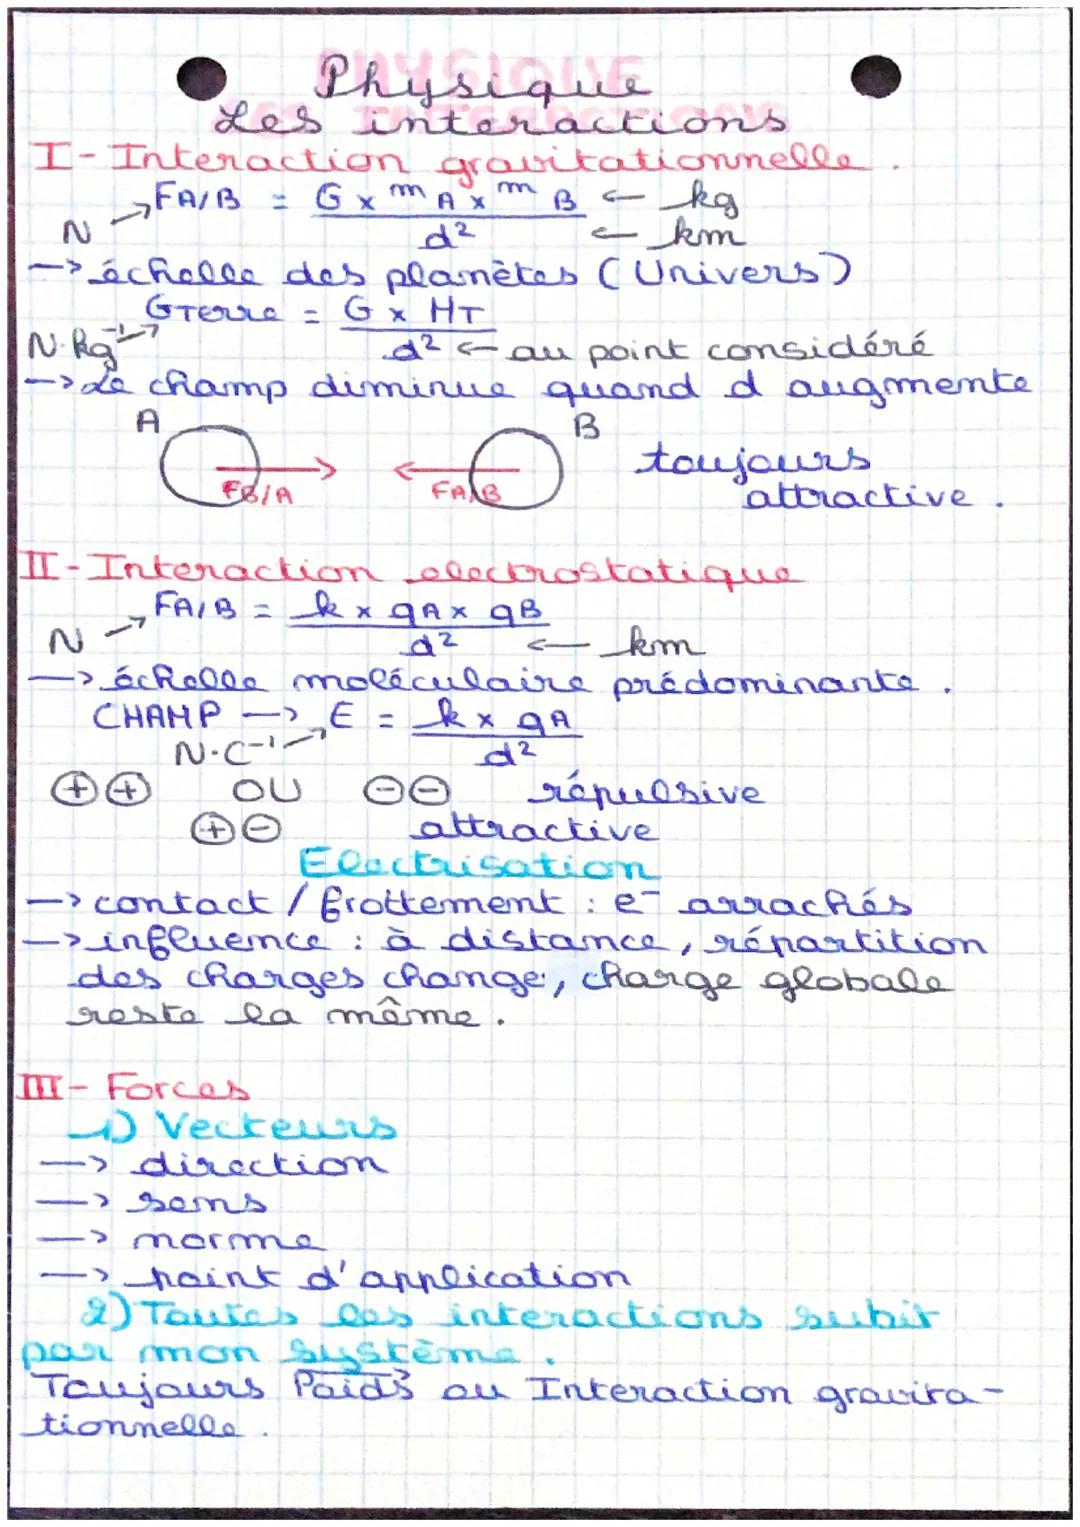 Physique
Les interactions
I - Interaction gravitationnelle.
N → FA/B = G x mA x mB ← kg
d² ← km
-> échelle des planètes (Univers)
GTerre = G x MT
N.kg⁻¹ → d² ← au point considéré
-> Le champ diminue quand d augmente
A B
toujours
FB/A FA/B attractive.
II - Interaction electrostatique
N → FA/B = k x qA x qB
d² ← km
-> échelle moléculaire prédominante.
CHAMP -> E = k x qA
N.C⁻¹ → d²
+ + OU - - répulsive
+ - attractive
Electrisation
-> contact / frottement : e⁻ arrachés
-> influence : à distance, répartition
des charges change, charge globale
reste la même.
III - Forces
1) Vecteurs
-> direction
-> sens
-> norme
-> point d'application
2) Toutes les interactions subit
par mon système.
Toujours Poids ou Interaction gravita-
tionnelle.